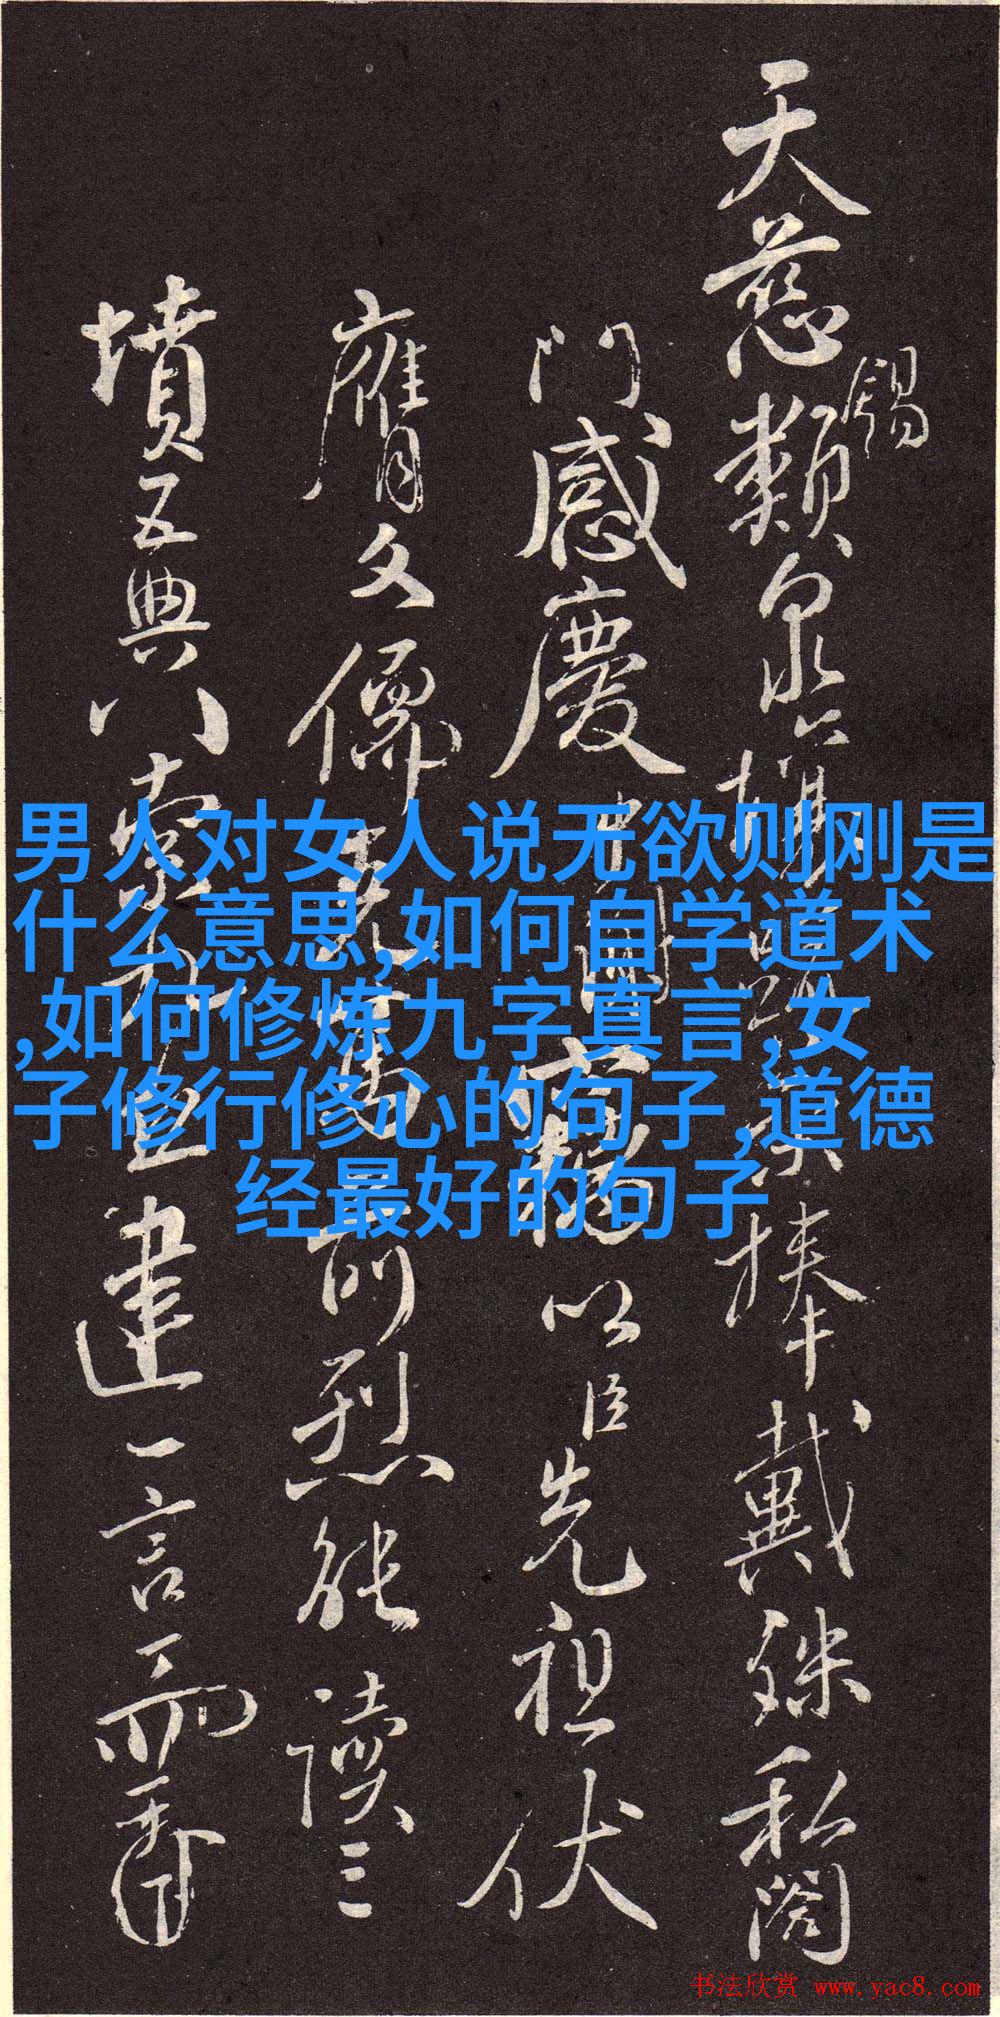 天慈類錫泉捧戴殊私闔
門感慶中竊以臣先祖伏
膺文儒克篤前烈能讀三
墳五典八索九丘建一言
男人对女人说无欲则刚是
什么意思,如何自学道术
,如何修炼九字真言,女
子修行修心的句子,道德
经最好的句子
书法欣赏 www.yac8.com